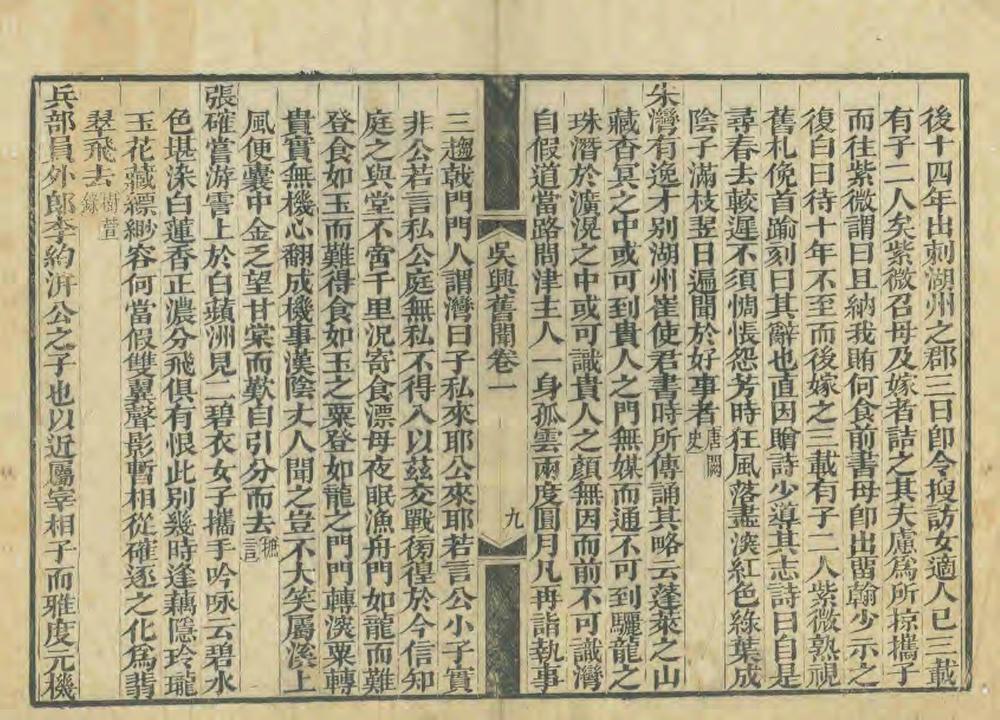 後十四年出刺湖州之郡三日卽令搜訪女適人已三載
有子二人矣紫微召母及嫁者詰之其夫慮爲所掠攜子
而往紫微謂曰且納我賄何食前書母卽出畱翰少示之
復白曰待十年不至而後嫁之三載有子二人紫微熟視
舊札俛首踰刻曰其辭也直因贈詩少導其志詩曰自是
尋春去較遲不須惆悵怨芳時狂風落盡深紅色綠葉成
陰子滿枝翌日遍聞於好事者唐闕史
朱灣有逸才別湖州崔使君書時所傳誦其略云蓬萊之山
藏杳冥之中或可到貴人之門無媒而通不可到驪龍之
珠潛於瀇滉之中或可識貴人之顏無因而前不可識灣
自假道當路問津主人一身孤雲兩度圓月凡再詣執事
吳興舊聞卷一
九
三趨戟門門人謂灣曰子私來耶公來耶若言公小子實
非公若言私公庭無私不得入以茲交戰徬徨於今信知
庭之與堂不啻千里況寄食漂母夜眠漁舟門如龍而難
登食如玉而難得食如玉之粟登如龍之門門轉深粟轉
貴實無機心翻成機事漢陰丈人聞之豈不大笑屬溪上
風便囊中金乏望甘棠而歎自引分而去摭言
張確嘗游霅上於白蘋洲見二碧衣女子攜手吟咏云碧水
色堪染白蓮香正濃分飛俱有恨此別幾時逢藕隱玲瓏
玉花藏縹緲容何當假雙翼聲影暫相從確逐之化爲翡
翠飛去樹萱錄
兵部員外郎李約汧公之子也以近屬宰相子而雅度元機